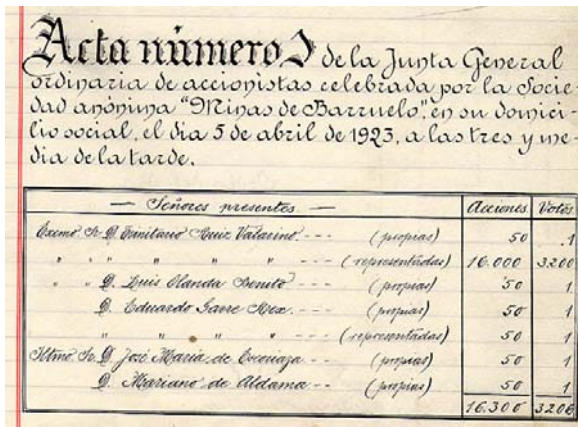 Acta número 1 de la Junta General
ordinaria de accionistas celebrada por la Socie-
dad anónima "Minas de Barruelo", en su domici-
lio social, el dia 5 de abril de 1923, a las tres y me-
dia de la tarde.
— Señores presentes. — Acciones Votos
Excmo. Sr. D. Trinitario Ruiz Valarino. - - - (propias) 50 1
" " " " " " - - - (representadas) 16.000 3200
" " D. Luis Olanda Benito - - - (propias) 50 1
D. Eduardo Garre Rex. - - - (propias) 50 1
" " " " - - - (representadas) 50 1
Iltmo. Sr. D. José Maria de - - (propias) 50 1
D. Mariano de Aldama - - (propias) 50 1
16.300 3206